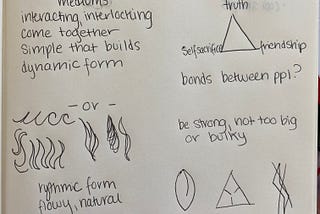 mediums
interacting, interlocking
come together
Simple that builds
dynamic form
- or -
rythmic form
flowy, natural
truth
Selfsacrifice
friendship
bonds between ppl?
be strong, not too big
or bulky